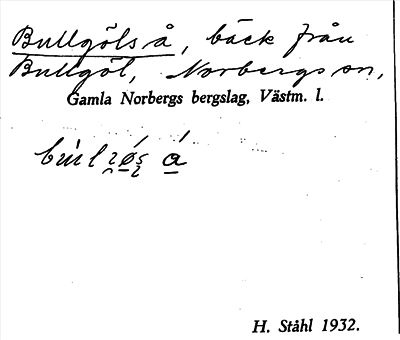 Bullgöls å, bäck från
Bullgöl, Norbergs sn,
Gamla Norbergs bergslag, Västm. l.
H. Ståhl 1932.